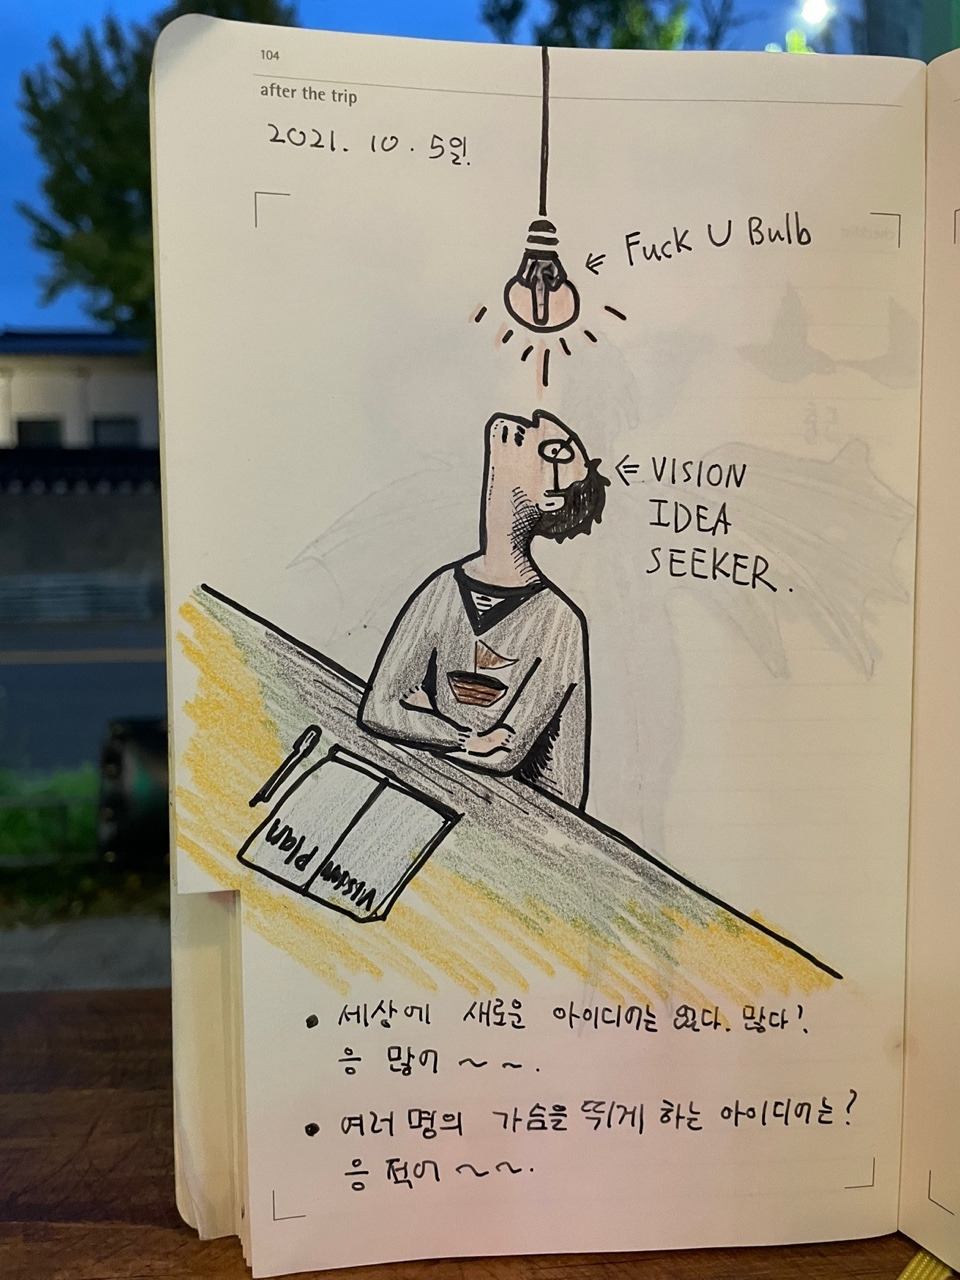 104
after the trip
2021. 10. 5일.
Fuck U Bulb
VISION
IDEA
SEEKER.
Vision Plan
• 세상에 새로운 아이디어는 없다. 많다!.
응 많어 ~ ~.
• 여러 명의 가슴을 뛰게 하는 아이디어는?
응 적어 ~~.